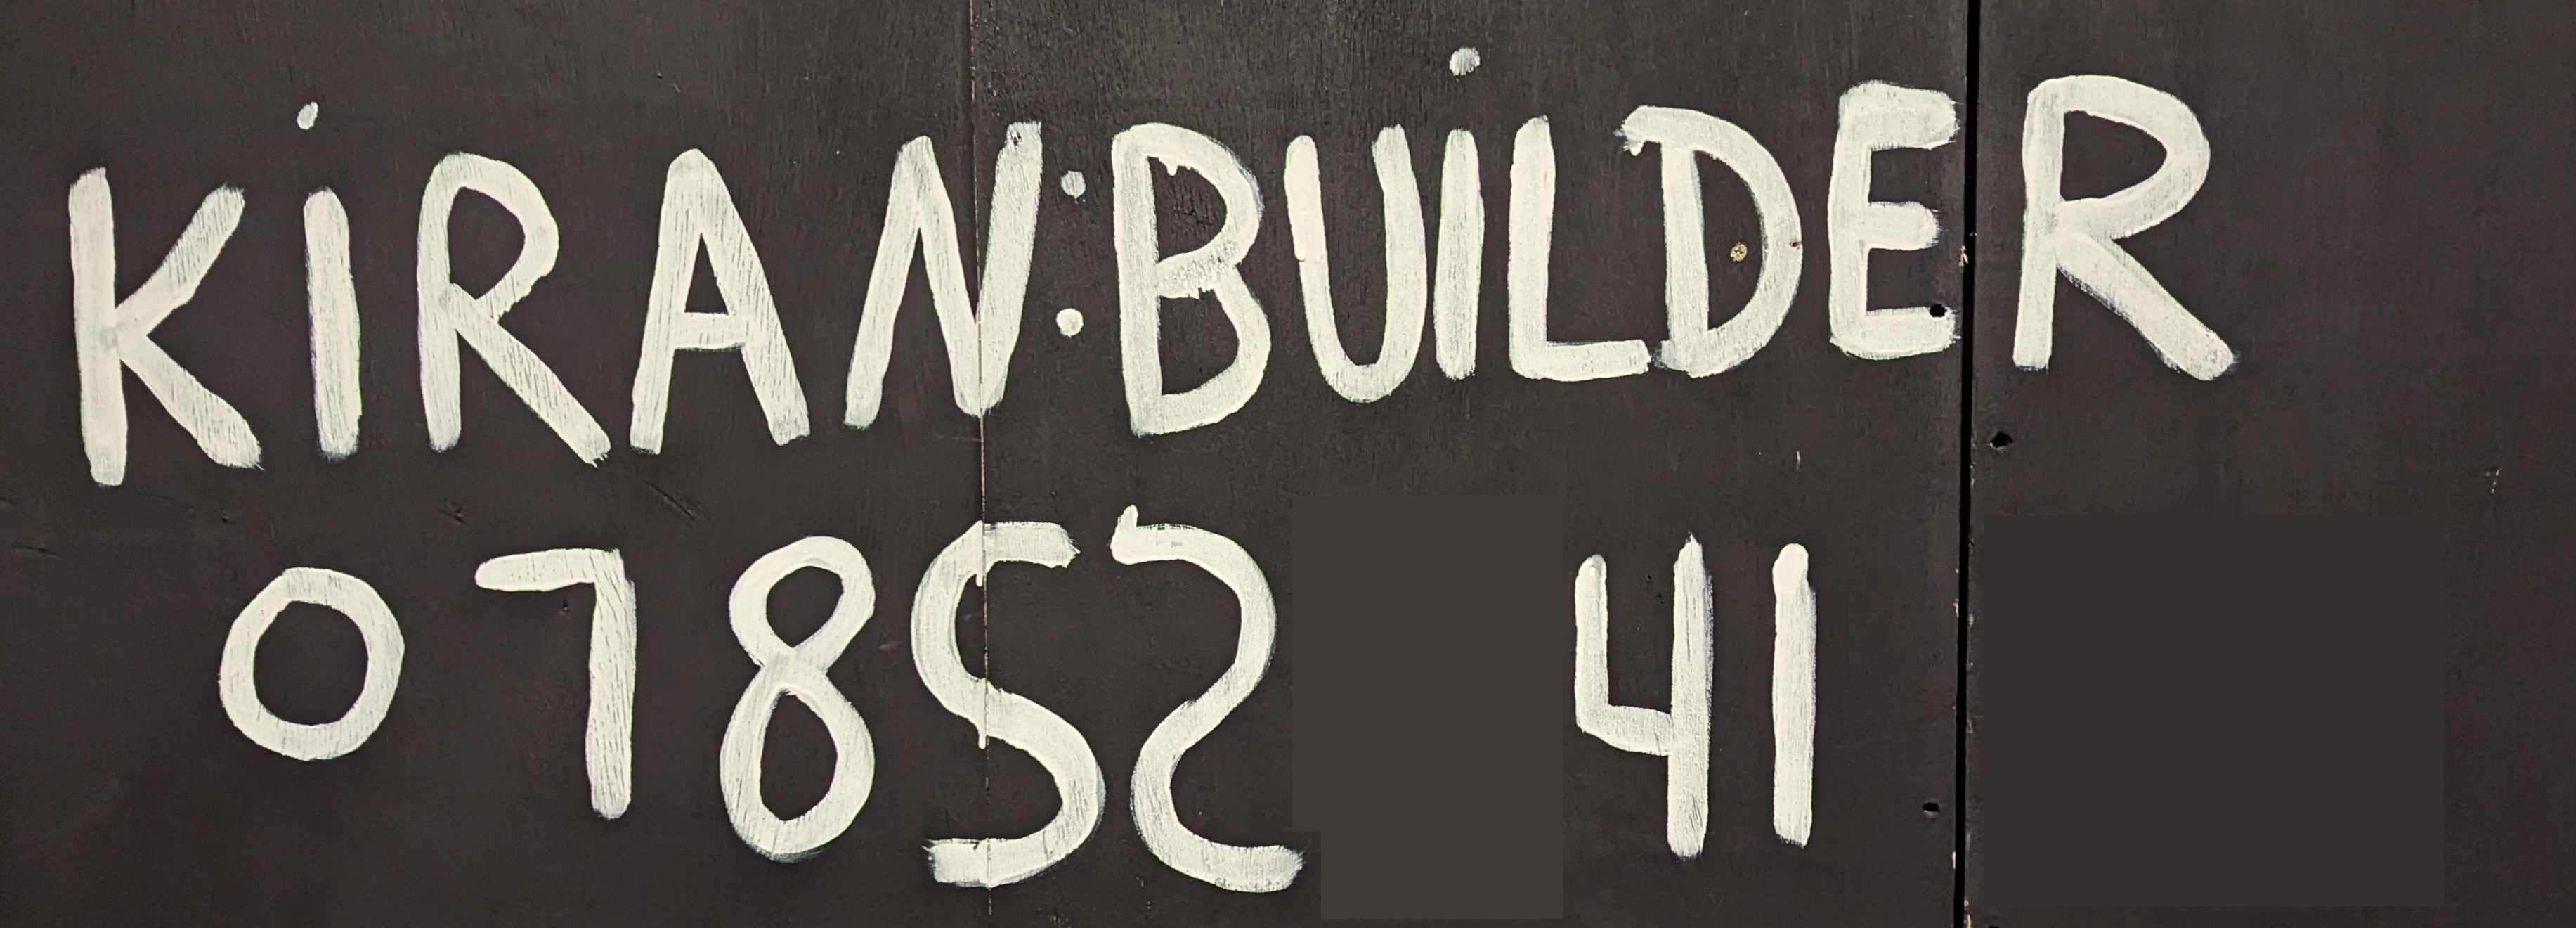 KiRAN:BUiLDER
07852 41